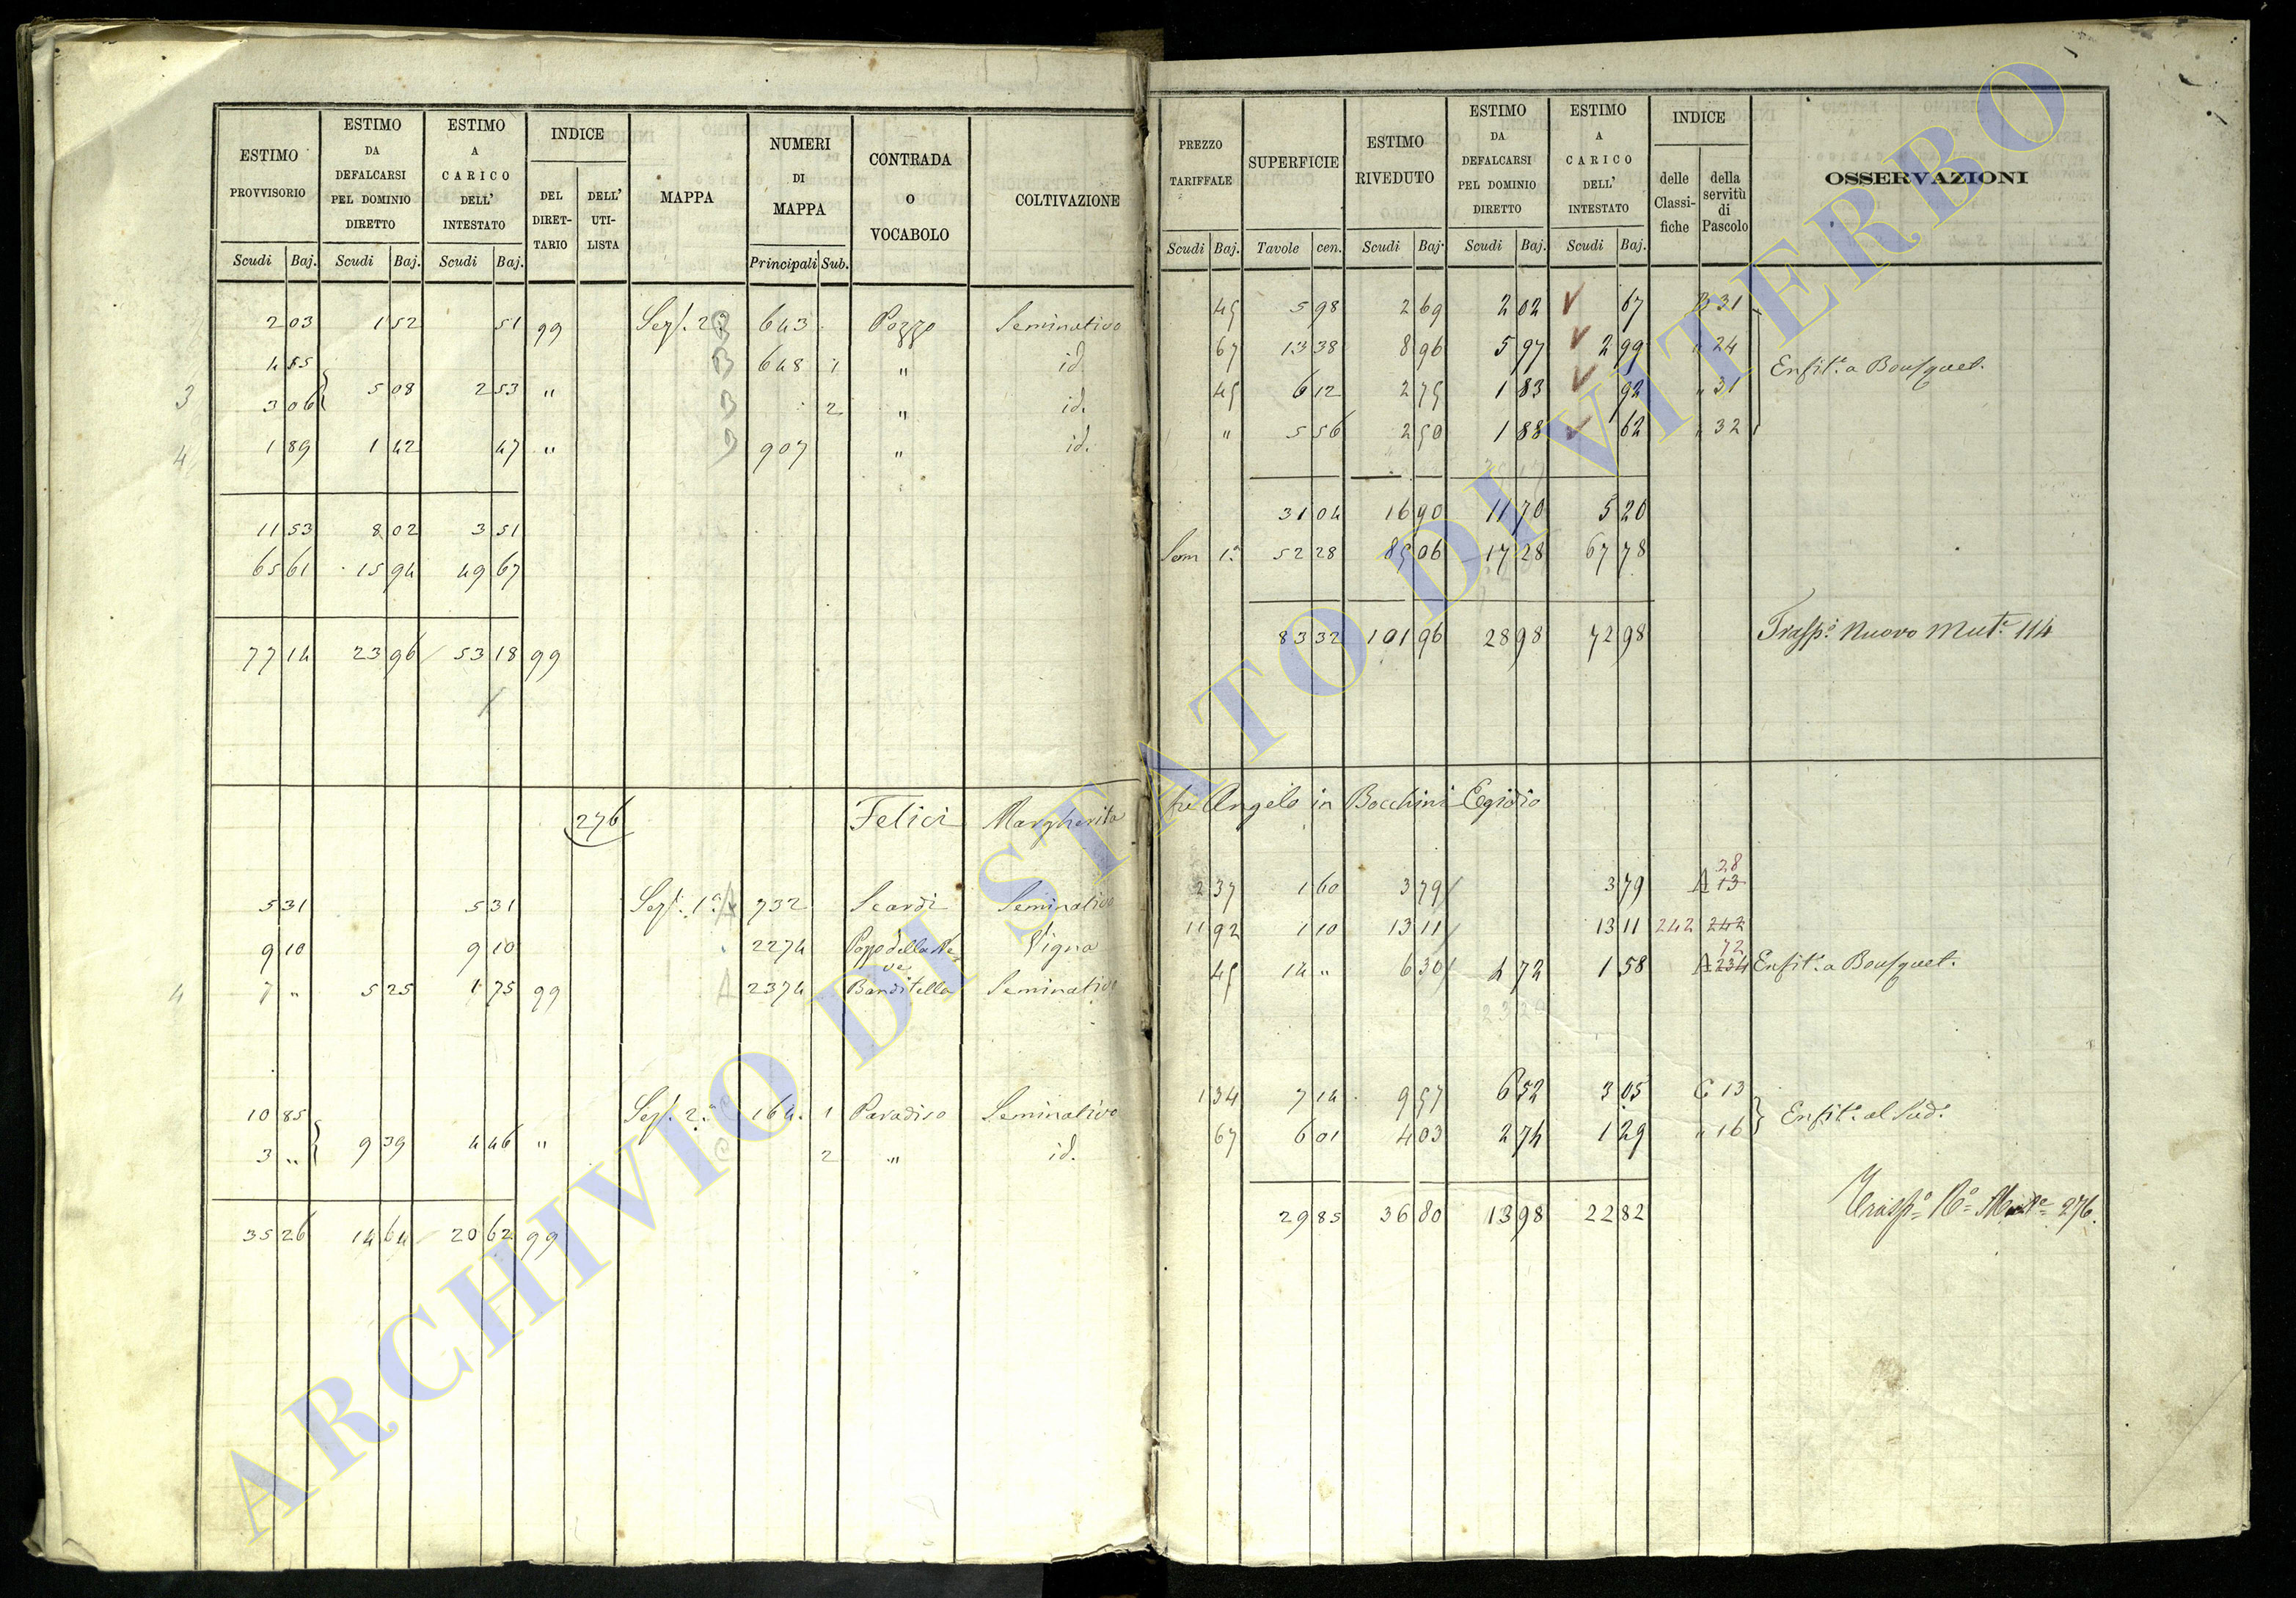 ESTIMO PROVVISORIO Scudi Baj.
ESTIMO DA DEFALCARSI PEL DOMINIO DIRETTO Scudi Baj.
ESTIMO A CARICO DELL' INTESTATO Scudi Baj.
INDICE DEL DIRETTARIO DELL' UTILISTA
MAPPA
NUMERI DI MAPPA Principali Sub.
CONTRADA O VOCABOLO
COLTIVAZIONE
PREZZO TARIFFALE Scudi Baj.
SUPERFICIE Tavole cen.
ESTIMO RIVEDUTO Scudi Baj.
ESTIMO DA DEFALCARSI PEL DOMINIO DIRETTO Scudi Baj.
ESTIMO A CARICO DELL' INTESTATO Scudi Baj.
INDICE delle Classifiche della servitù di Pascolo
OSSERVAZIONI
2 03 1 52 51 99 Sez. 2ª B 643 Pozzo Seminativo 45 5 98 2 69 2 02 67 B 31
4 55 B 648 1 " id. 67 13 38 8 96 5 97 2 99 " 24 Enfit. a Bousquet.
3 3 06 5 08 2 53 " B 2 " id. 45 6 12 2 75 1 83 92 " 31
4 1 89 1 42 47 " 907 " id. " 5 56 2 50 1 88 62 " 32
11 53 8 02 3 51 31 04 16 90 11 70 5 20
65 61 15 94 49 67 Som 1ª 52 28 85 06 17 28 67 78
77 14 23 96 53 18 99 83 32 101 96 28 98 72 98 Trasp. Nuovo Mut.e 114
276 Felici Margherita fu Angelo in Bocchini Egidio
5 31 5 31 Sez. 1ª A 732 Scardi Seminativo 2 37 1 60 3 79 3 79 A 13 28
9 10 9 10 2274 Pozzo della Neve Vigna 11 92 1 10 13 11 13 11 242 242
4 7 " 5 25 1 75 99 A 2374 Banditella Seminativo 45 14 " 6 30 4 72 1 58 A 234 72 Enfit. a Bousquet.
10 85 Sez. 2ª 164 1 Paradiso Seminativo 1 34 7 14 9 57 6 52 3 05 C 13 Enfit. al Sud.
3 " 9 39 4 46 " 2 " id. 67 6 01 4 03 2 74 1 29 " 16
35 26 14 64 20 62 99 29 85 36 80 13 98 22 82 Trasp.o N.o Mut.e 276.
ARCHIVIO DI STATO DI VITERBO